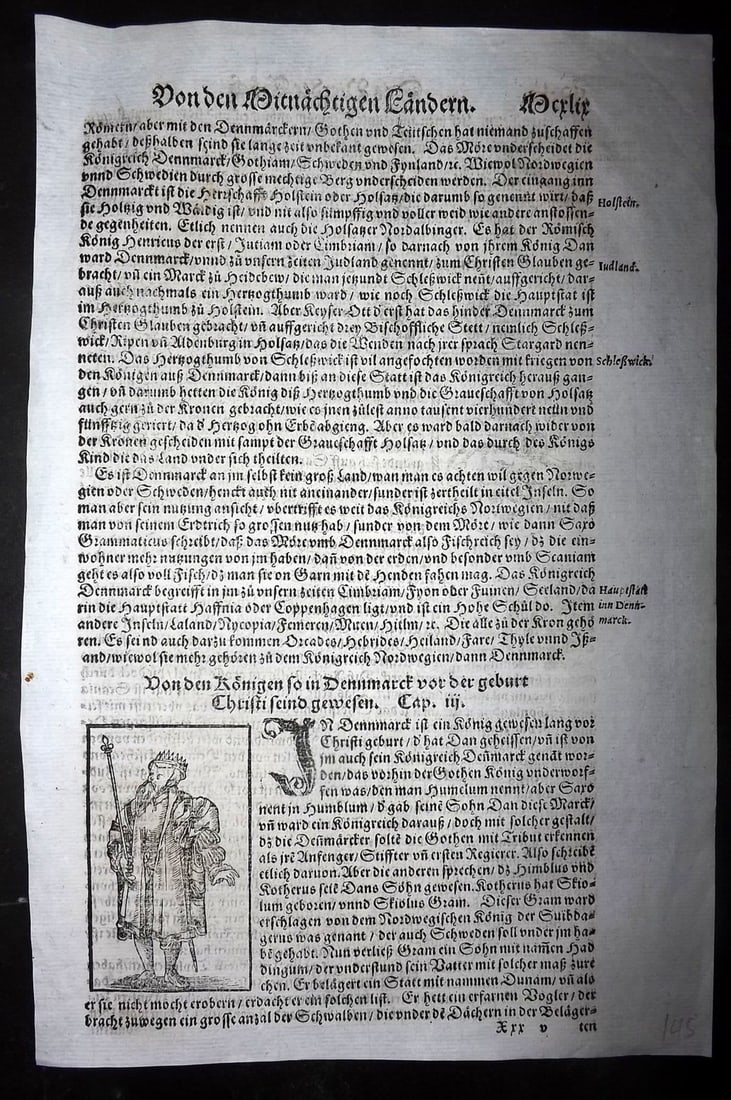 Von den Mitnächtigen Ländern. Mcxlix
Römern/aber mit den Dennmärckern/ Gothen vnd Teütschen hat niemand zuschaffen
gehabt/ deßhalben seind sie lange zeit vnbekant gewesen. Das Möre vnderscheidet die
Königreich Dennmarck/ Gothiam/ Schweden vnd Fynland/ꝛc. Wiewol Nordwegien
vnnd Schwedien durch grosse mechtige Berg vnderscheiden werden. Der eingang inn
Dennmarckt ist die Herrschafft Holstein oder Holsatz/die darumb so genennt wirt/ daß
sie Holtzig vnd Wäldig ist/ vnd nit also sümpffig vnd voller weid wie andere anstossen=
Holstein.
de gegenheiten. Etlich nennen auch die Holsatzer Nordalbinger. Es hat der Römisch
König Henricus der erst/ Jutiam oder Cimbriam/ so darnach von jhrem König Dan
ward Dennmarck/vnnd zů vnsern zeiten Judland genennt/ zum Christen Glauben ge=
Iudland.
bracht/ vn̄ ein Marck zů Heidebew/ die man jetzundt Schleßwick nent/auffgericht/ dar=
auß auch nachmals ein Hertzogthumb ward/ wie noch Schleßwick die Hauptstat ist
im Hertzogthumb zů Holstein. Aber Keyser Ott der erst hat das hinder Dennmarck zum
Christen Glauben gebracht/ vn̄ auffgericht drey Bischoffliche Stett/ nemlich Schleß=
wick/Ripen vn̄ Aldenburg in Holsatz/das die Wenden nach jrer sprach Stargard nen=
neten. Das Hertzogthumb von Schleßwick ist vil angefochten worden mit kriegen von
Schleßwick.
den Königen auß Dennmarck/dann biß an diese Statt ist das Königreich herauß gan=
gen/ vn̄ darumb hetten die König diß Hertzogthumb vnd die Graueschafft von Holsatz
auch gern zů der Kronen gebracht/wie es jnen zůlest anno tausent vierhundert neün vnd
fünfftzig geriert/ da d' Hertzog ohn Erben abgieng. Aber es ward bald darnach wider von
der Kronen gescheiden mit sampt der Graueschafft Holsatz/ vnd das durch des Königs
Kind die das Land vnder sich theilten.
Es ist Dennmarck an jm selbst kein groß Land/wan man es achten wil gegen Norwe=
gien oder Schweden/henckt auch nit aneinander/sunder ist zertheilt in eitel Inseln. So
man aber sein nutzung ansicht/ vbertrifft es weit das Königreichs Nortwegien/ nit daß
man von seinem Erdtrich so grossen nutz hab/ sunder von dem Möre/ wie dann Saxo
Grammaticus schreibt/ daß das Möre vmb Dennmarck also Fischreich sey/ dz die ein=
wohner mehr nutzungen von jm haben/ dan̄ von der erden/vnd besonder vmb Scaniam
geht es also voll Fisch/ dz man sie on Garn mit dē Henden fahen mag. Das Königreich
Dennmarck begreifft in jm zů vnsern zeiten Cimbriam/Fyon oder Fuinen/ Seeland/da
Hauptstatt
rin die Hauptstatt Haffnia oder Coppenhagen ligt/vnd ist ein Hohe Schůl do. Item
inn Denn=
andere Inseln/Laland/Nycopia/Femeren/Muen/Hielm/ꝛc. Die alle zů der Kron gehö
marck.
ren. Es seind auch darzu kommen Orcades/Hebrides/Heiland/Fare/ Thyle vnnd Iß=
and/wiewol sie mehr gehören zů dem Königreich Nordwegien/dann Dennmarck.
Von den Königen so in Dennmarck vor der geburt
Christi seind gewesen. Cap. iij.
IN Dennmarck ist ein König gewesen lang vor
Christi geburt/ d' hat Dan geheissen/vn̄ ist von
jm auch sein Königreich Den̄marck genāt wor=
den/das vorhin der Gothen König vnderworf=
fen was/den man Humelum nennt/aber Saxo
nent jn Humblum/ d' gab seinē Sohn Dan diese Marck/
vn̄ ward ein Königreich darauß/ doch mit solcher gestalt/
dz die Den̄märcker soltē die Gothen mit Tribut erkennen
als jrē Anfenger/Stiffter vn̄ ersten Regierer. Also schreibē
etlich daruon. Aber die andern sprechen/ dz Himblus vnd
Kotherus seiē Dans Söhn gewesen. Kotherus hat Skio=
lum geboren/ vnnd Skiolus Gram. Dieser Gram ward
erschlagen von dem Nordwegischen König der Suibda=
gerus was genant/ der auch Schweden soll vnder jm ha=
bē gehabt. Nun verließ Gram ein Sohn mit nam̄en Had
dingum/ der vnderstund sein Vatter mit solcher maß zůre
chen. Er belägert ein Statt mit nammen Dunam/ vn̄ als
er sie nicht mocht erobern/ erdacht er ein solchen list. Er hett ein erfarnen Vogler/ der
bracht zuwegen ein grosse anzal der Schwalben/ die vnder dē Dächern in der Beläger=
Xxx v ten
145